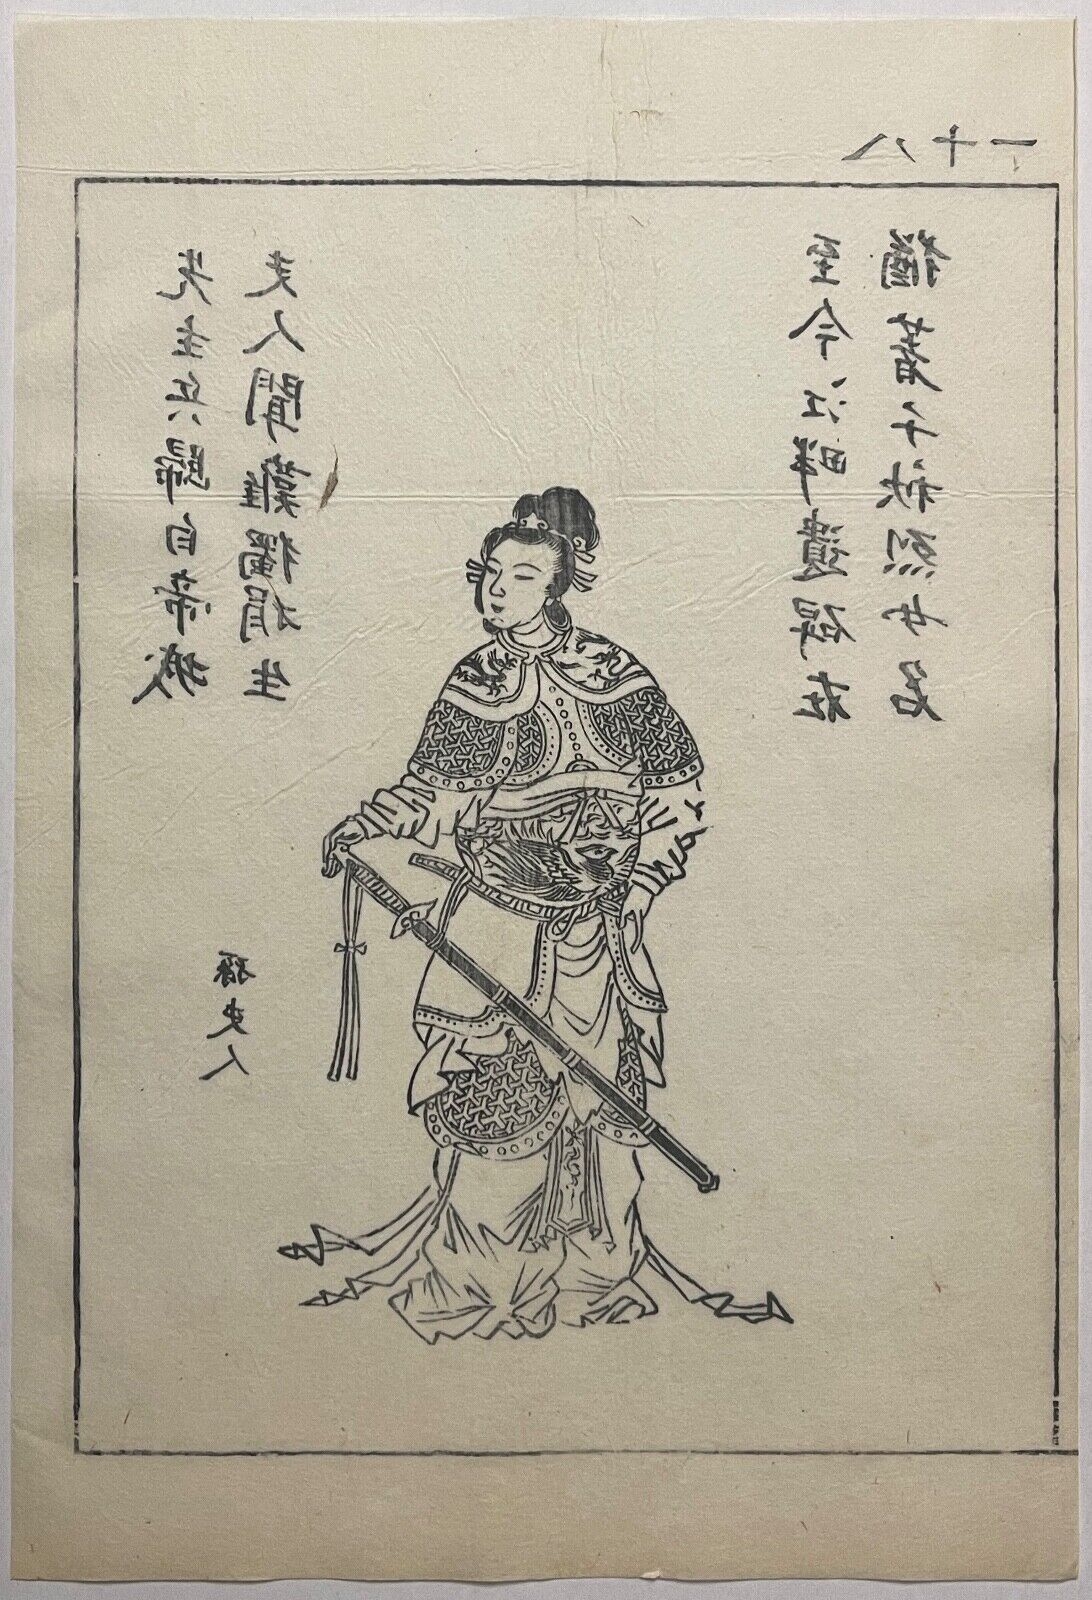 八十一
先主兵歸白帝城
夫人聞難獨捐生
孫夫人
至今江畔遺碑在
猶著千秋烈女名